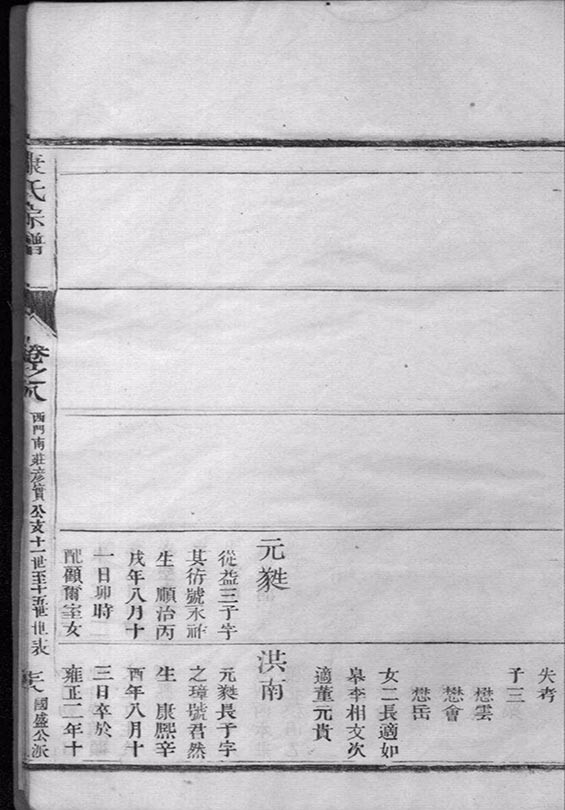 失考
子三
懋雲
懋會
懋岳
女二長適如
皋李相文次
適董元貴
元
從益三子字
生 順治丙
戌年八月十
一日卯時
配顧爾室女
洪南
長子字
之璋號君然
生 康熙辛
酉年八月十
三日卒於
雍正二年十
康氏宗譜
卷之八
西門南莊彥賓公支十一世至十五世世表
國盛公派